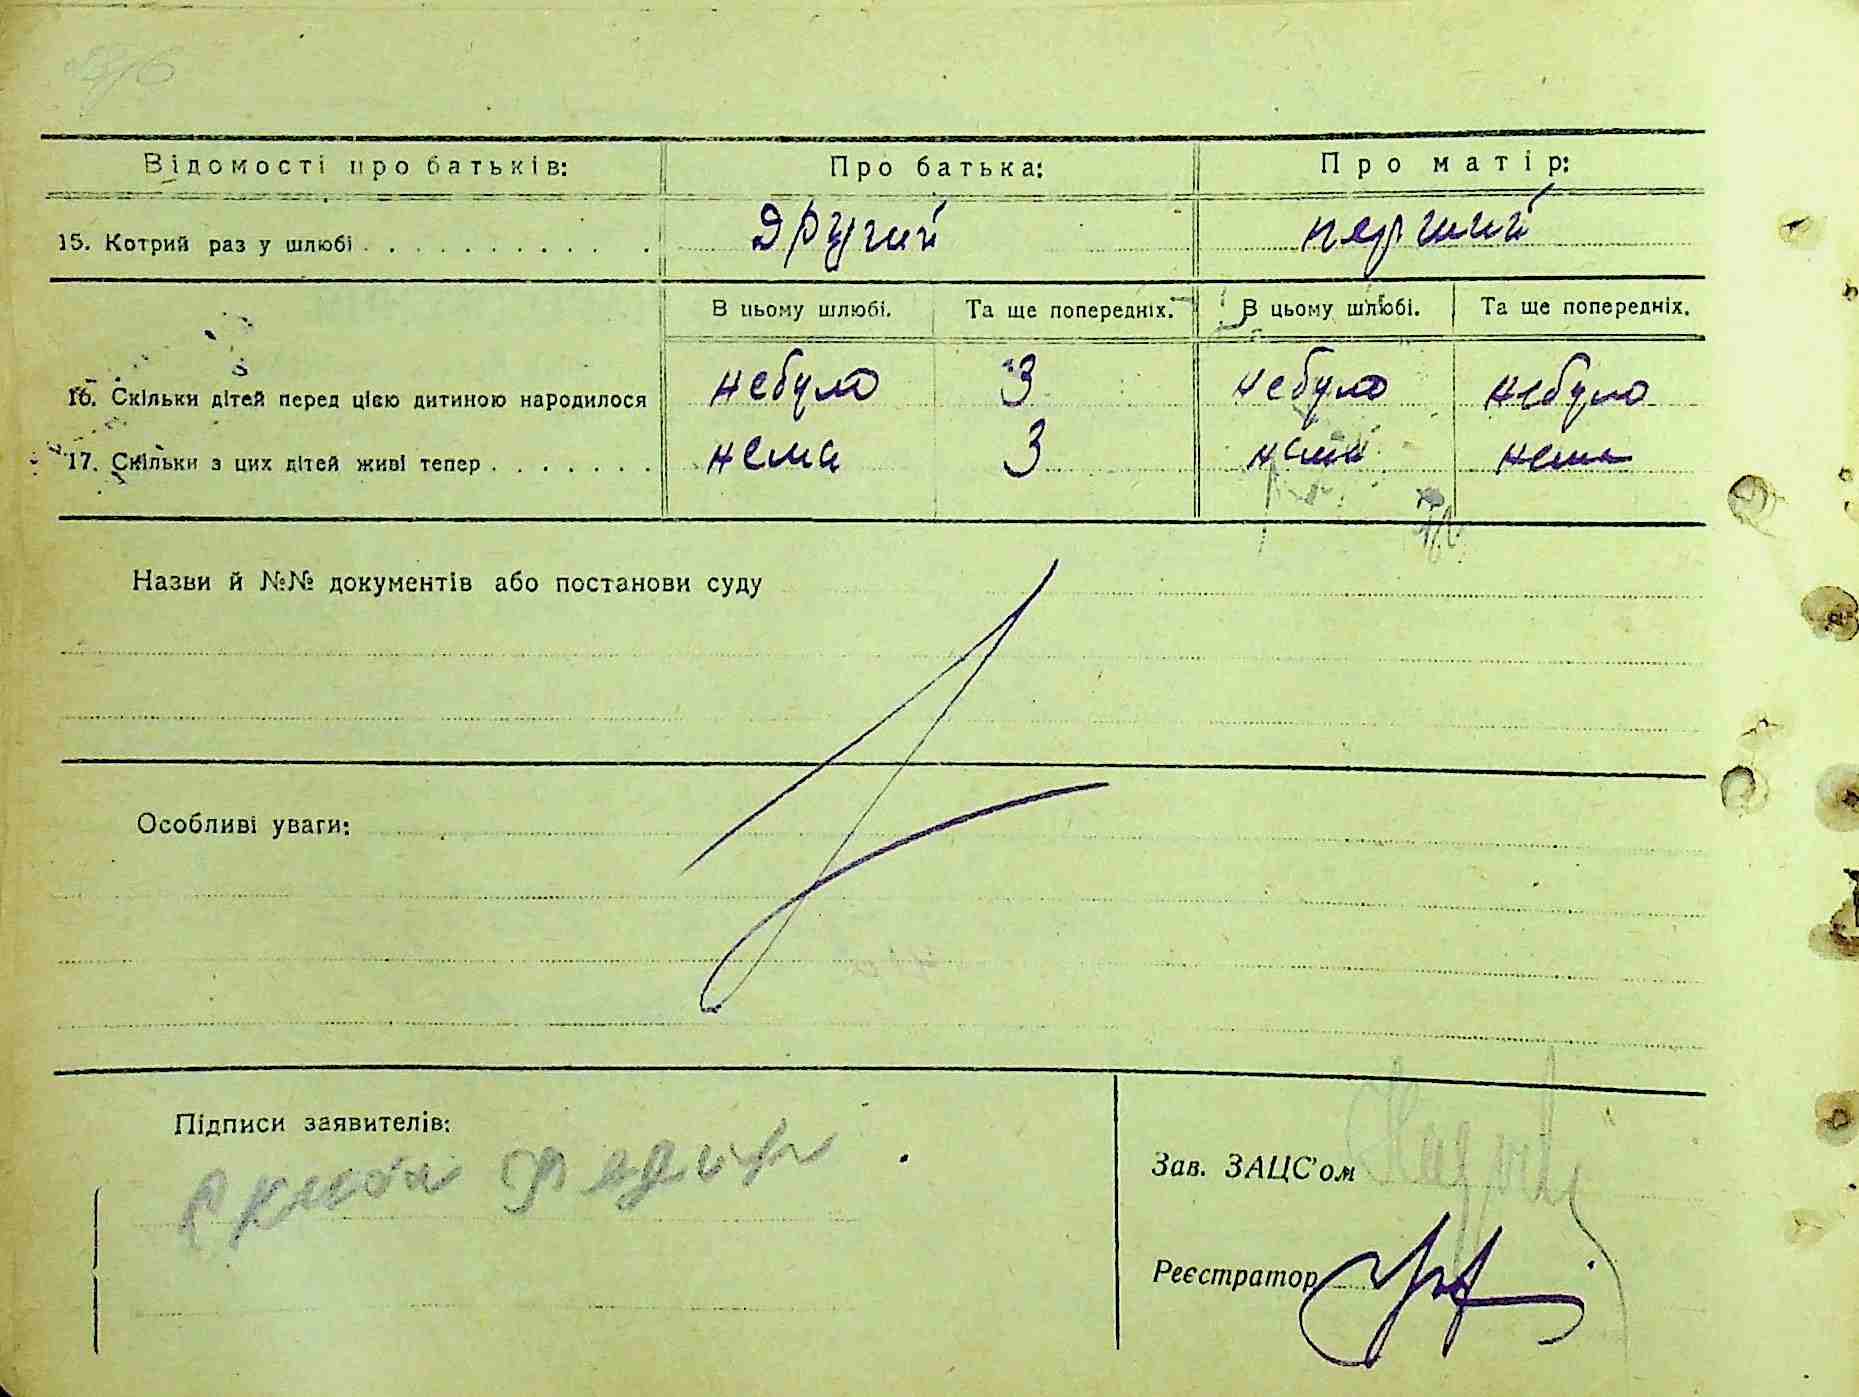 Відомості про батьків: Про батька: Про матір:
15. Котрий раз у шлюбі . . . . . . . . . . . другий перший
В цьому шлюбі. Та ще попередніх. В цьому шлюбі. Та ще попередніх.
16. Скільки дітей перед цією дитиною народилося небуло 3 небуло небуло
17. Скільки з цих дітей живі тепер . . . . . . . нема 3 нема нема
Назви й №№ документів або постанови суду
Особливі уваги:
Підписи заявителів:
Зав. ЗАЦС'ом
Реєстратор